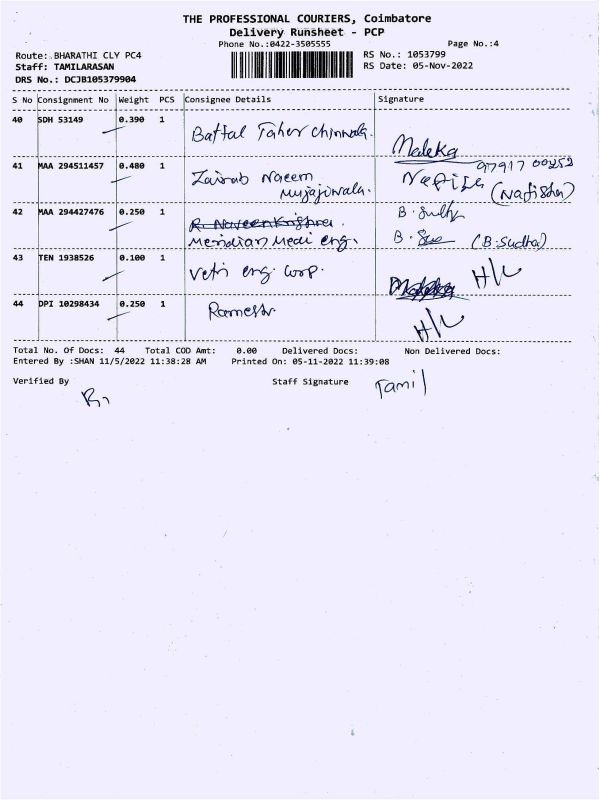 THE PROFESSIONAL COURIERS, Coimbatore
Delivery Runsheet - PCP
Phone No.:0422-3505555
Page No.:4
Route: BHARATHI CLY PC4
RS No.: 1053799
Staff: TAMILARASAN
RS Date: 05-Nov-2022
DRS No.: DCJB105379904
S No Consignment No Weight PCS Consignee Details Signature
40 SDH 53149 0.390 1 Battal Taher Chinwala. Maleka
97917 00252
41 MAA 294511457 0.480 1 Zainab Naeem Nafisa
Mujajiwala. (Nafisha)
42 MAA 294427476 0.250 1 R. Naveenkrishna. B. Sudha
Meridian Medi eng. B. Sue (B. Sudha)
43 TEN 1938526 0.100 1 Veto eng. Corp. H/L
44 DPI 10298434 0.250 1 Ramesh H/L
Total No. Of Docs: 44 Total COD Amt: 0.00 Delivered Docs: Non Delivered Docs:
Entered By :SHAN 11/5/2022 11:38:28 AM Printed On: 05-11-2022 11:39:08
Verified By Staff Signature Tamil